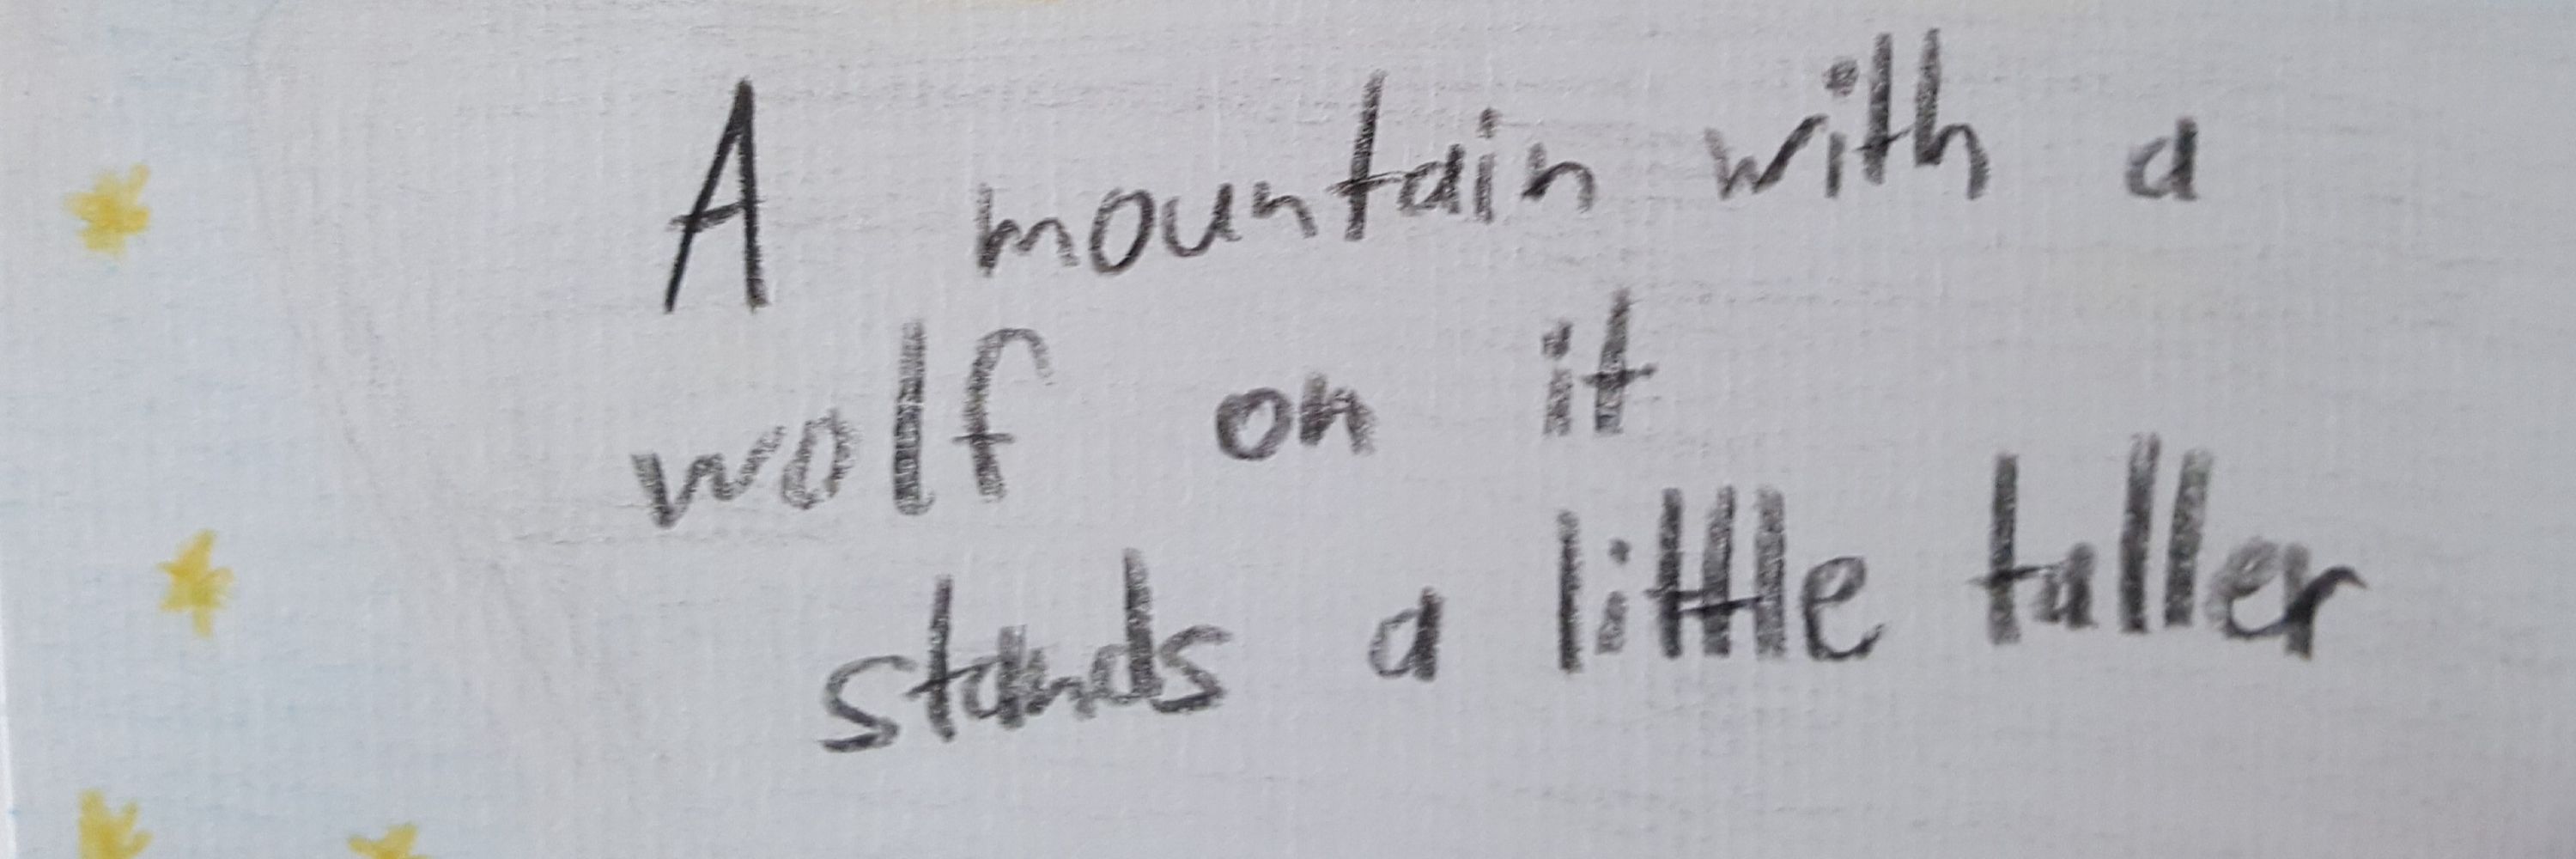 A mountain with a
wolf on it
stands a little taller